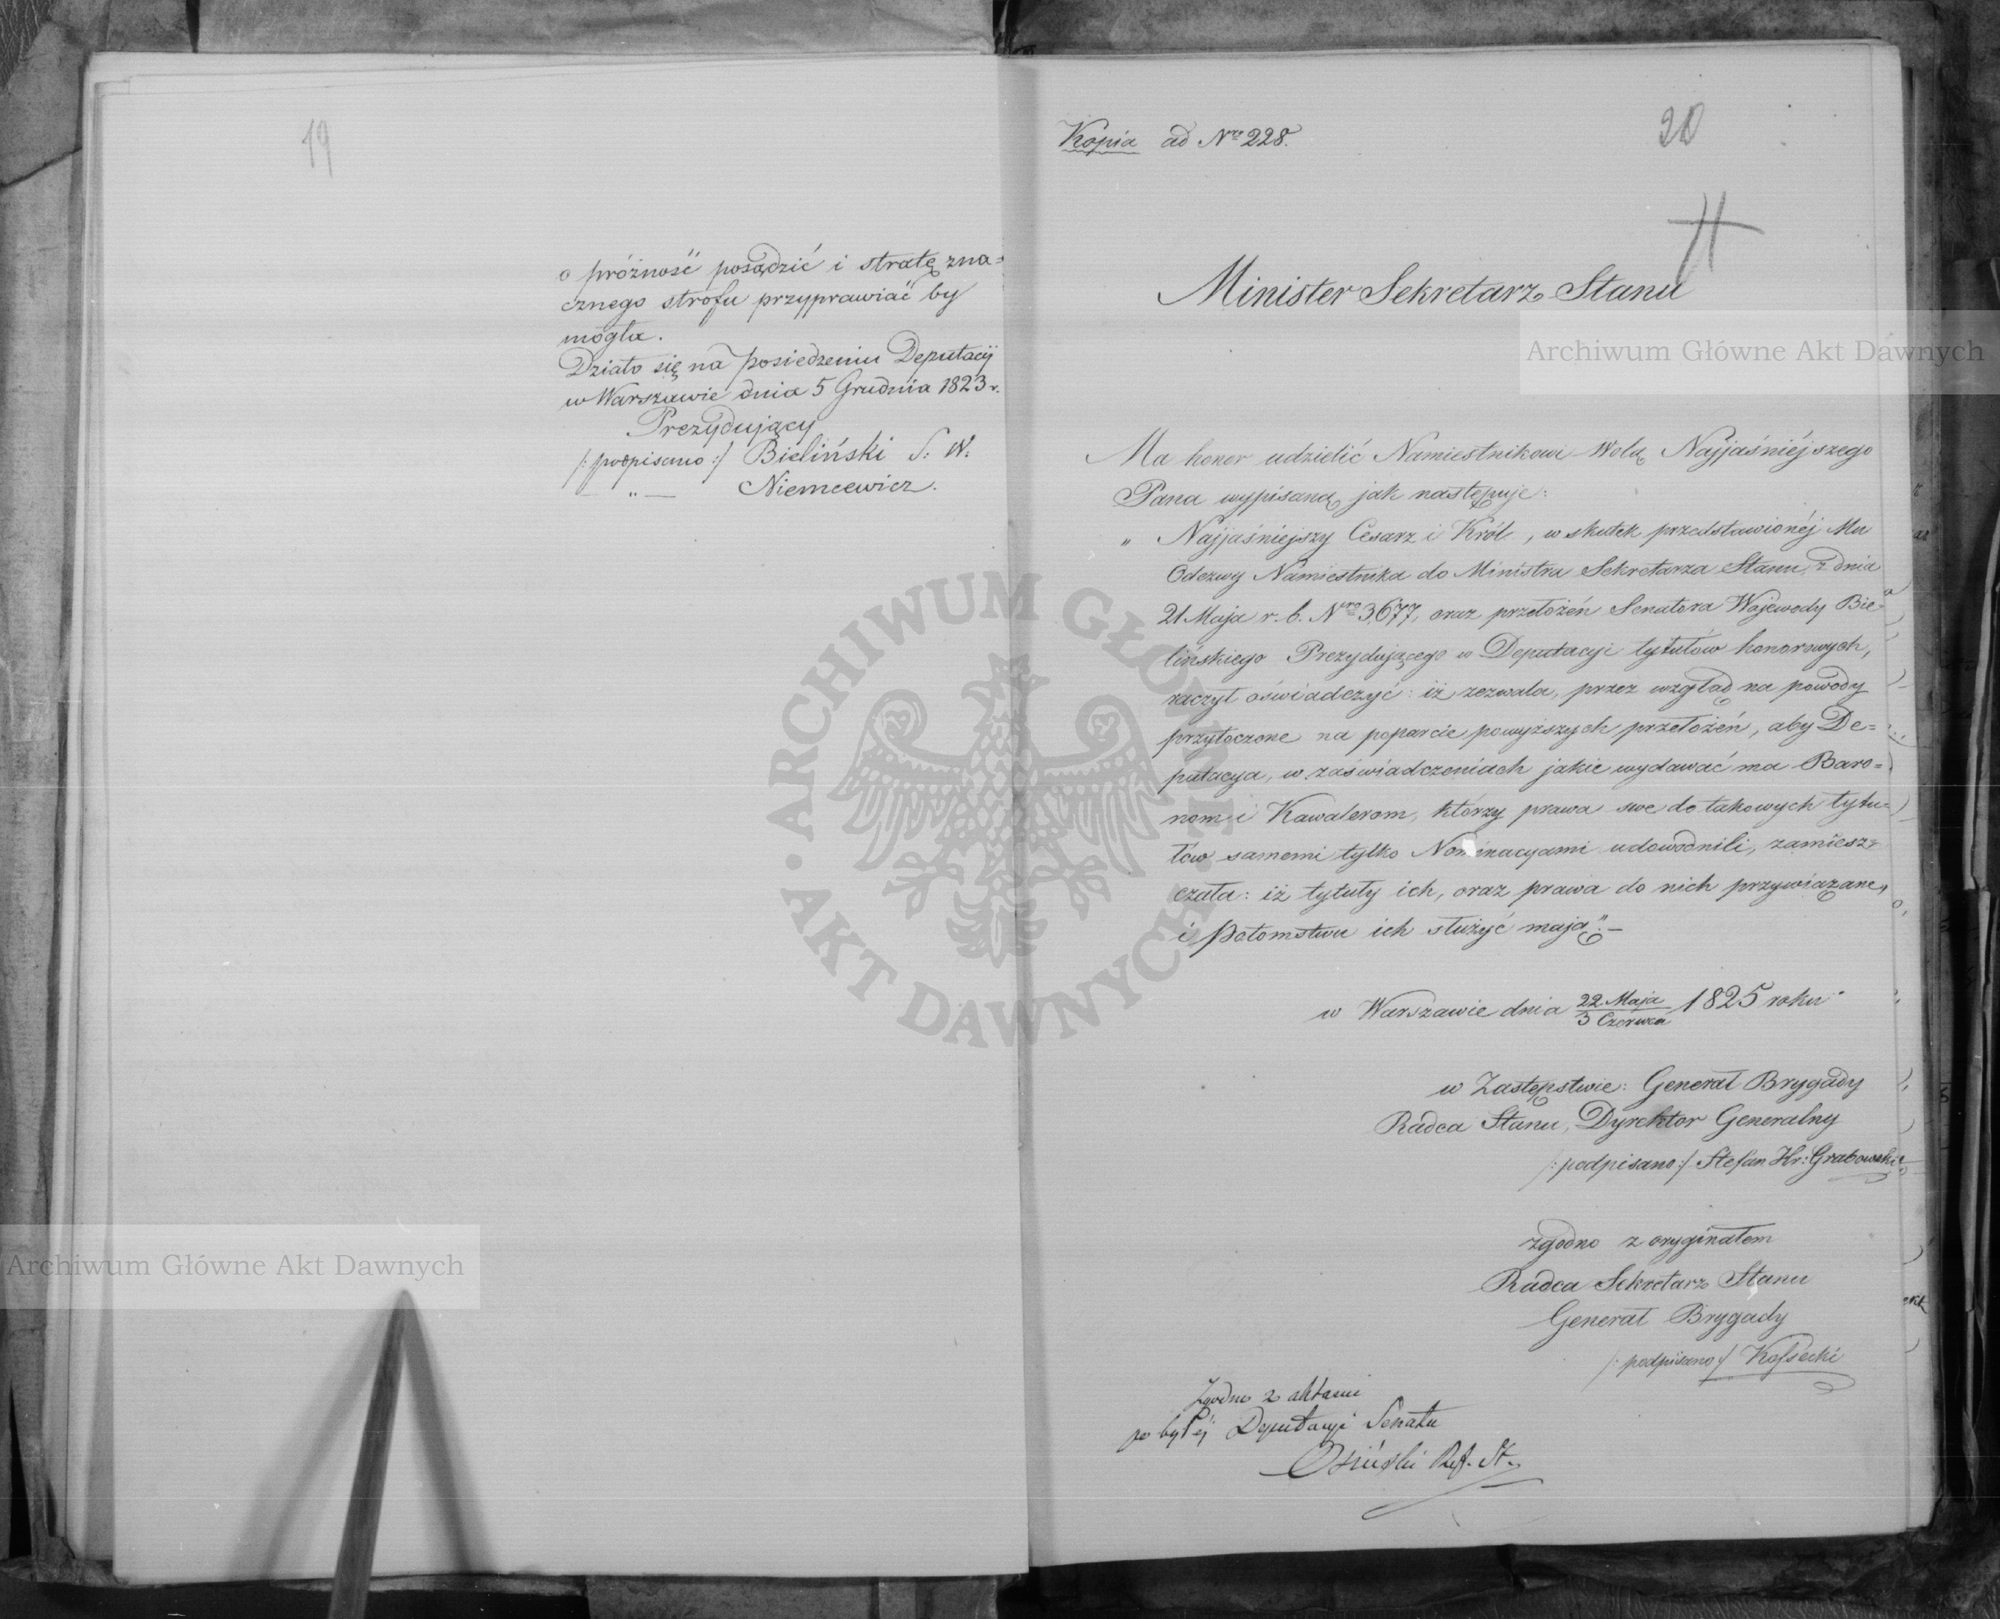 19
o próżność posądzić i stratę zna=
cznego strofu przyprawiać by
mogła.
Działo się na posiedzeniu Deputacyi
w Warszawie dnia 5 Grudnia 1823 r.
Prezydujący
/:podpisano:/ Bieliński S: W:
— „ — Niemcewicz.
20
Kopia ad Nro 228.
Minister Sekretarz Stanu
Ma honor udzielić Namiestnikowi Wolą Najjaśniéjszego
Pana wypisaną jak następuje:
„ Najjaśniejszy Cesarz i Król, w skutek przedstawionéj Mu
Odezwy Namiestnika do Ministra Sekretarza Stanu, z dnia
21 Maja r. b. Nro 3,677, oraz przełożeń Senatora Wojewody Bie=
lińskiego Prezydującego w Deputacyi tytułów honorowych,
raczył oświadczyć: iż zezwala, przez wzgląd na powody
przytoczone na poparcie powyższych przełożeń, aby De=
putacya, w zaświadczeniach jakie wydawać ma Baro=
nom i Kawalerom, którzy prawa swe do takowych tytu=
łów samemi tylko Nominacyami udowodnili, zamiesz=
czała: iż tytuły ich, oraz prawa do nich przywiązane,
i Potomstwu ich służyć mają". —
w Warszawie dnia 22 Maja / 3 Czerwca 1825 roku
w Zastępstwie: Generał Brygady
Radca Stanu, Dyrektor Generalny
/:podpisano:/ Stefan Hr: Grabowski
zgodno z oryginałem
Radca Sekretarz Stanu
Generał Brygady
/:podpisano:/ Kossecki
Zgodno z aktami
po byłéj Deputacyi Senatu
Osiński Ref. St.
Archiwum Główne Akt Dawnych
Archiwum Główne Akt Dawnych
ARCHIWUM GŁÓWNE AKT DAWNYCH